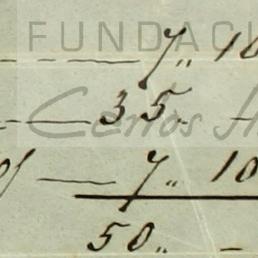 FUNDACI
— — — 7,, 10
— — 35,, —
of — 7,, 10
50,, —